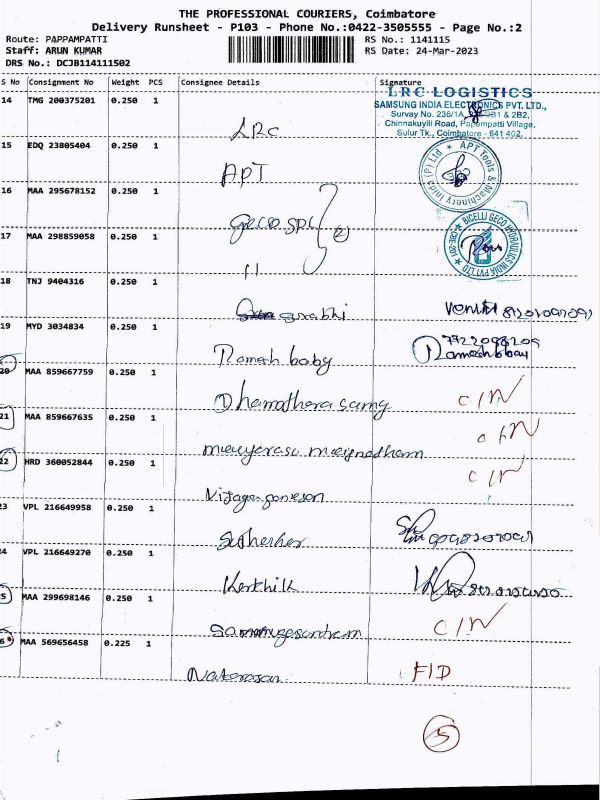 THE PROFESSIONAL COURIERS, Coimbatore
Delivery Runsheet - P103 - Phone No.:0422-3505555 - Page No.:2
Route: PAPPAMPATTI RS No.: 1141115
Staff: ARUN KUMAR RS Date: 24-Mar-2023
DRS No.: DCJB114111502
S No Consignment No Weight PCS Consignee Details Signature
LRC LOGISTICS
14 TMG 200375201 0.250 1
SAMSUNG INDIA ELECTRONICS PVT. LTD.,
Chinnakuyili Road, Papampatti Village,
LRC Sulur Tk., Coimbatore - 641 402.
15 EDQ 23805404 0.250 1
APT APT Tools & Machinery India (P) Ltd
16 MAA 295678152 0.250 1
Geco SPL (2)
BICELLI GECO HYDRAULICS INDIA PVT LTD
17 MAA 298859058 0.250 1
11
18 TNJ 9404316 0.250 1
19 MYD 3034834 0.250 1
Ramesh baby
20 MAA 859667759 0.250 1
C/N
21 MAA 859667635 0.250 1
C/N
22 HRD 360052844 0.250 1
C/N
23 VPL 216649958 0.250 1
24 VPL 216649270 0.250 1
Karthik
25 MAA 299698146 0.250 1
C/N
26 MAA 569656458 0.225 1
Natarasan F/D
5